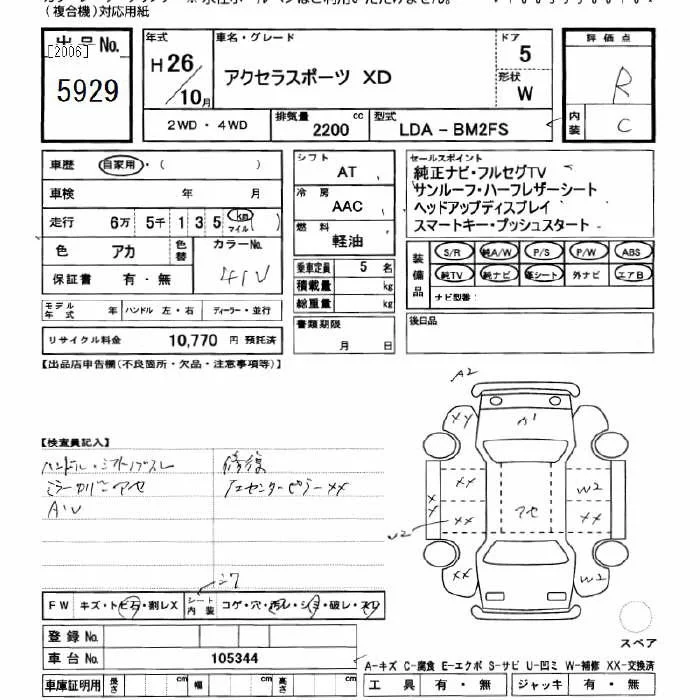 (複合機)対応用紙
出品No.
[2006]
5929
年式
H26/10月
車名・グレード
アクセラスポーツ XD
ドア
5
形状
W
評価点
R
内装
C
2WD・4WD
排気量
2200
cc
型式
LDA - BM2FS
車歴
自家用・( )
車検 年 月
走行 6万 5千 1 3 5 km マイル ( )
色 アカ
色替
カラーNo.
41V
保証書 有・無
モデル年式 年 ハンドル 左・右 ディーラー・並行
リサイクル料金 10,770 円 預託済
シフト
AT
冷房
AAC
燃料
軽油
乗車定員 5 名
積載量 kg
総重量 kg
書類期限
月 日
セールスポイント
純正ナビ・フルセグTV
サンルーフ・ハーフレザーシート
ヘッドアップディスプレイ
スマートキー・プッシュスタート
装備品
S/R 純A/W P/S P/W ABS
純TV 純ナビ 革シート 外ナビ エアB
ナビ型番:
後日品
【出品店申告欄(不良箇所・欠品・注意事項等)】
【検査員記入】
ハンドル・シフトノブスレ
ミラーカバーアセ
AW
修復
センターピラーXX
A2
XY
アセ
XX
XX
XX
XX
W2
W2
FW キズ・トビ石・割レX
シート内装
コゲ・穴・汚レ・シミ・破レ・スレ
登録No.
車台No. 105344
車庫証明用 長さ cm 幅 cm 高さ cm
スペア
A-キズ C-腐食 E-エクボ S-サビ U-凹ミ W-補修 XX-交換済
工具 有・無 ジャッキ 有・無